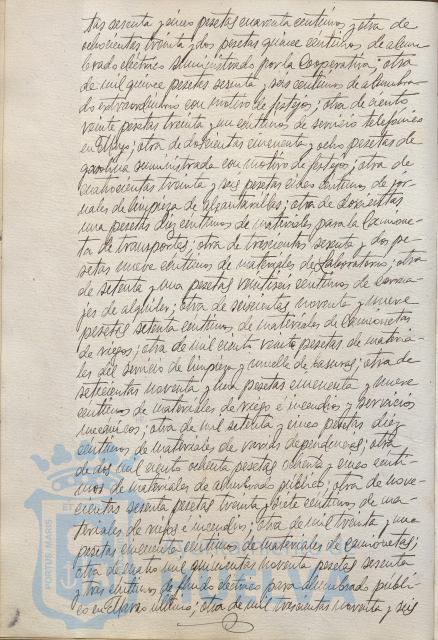 tas sesenta y cinco pesetas cuarenta céntimos; y otra de
ochocientas treinta y dos pesetas quince céntimos de alum-
brado eléctrico suministrado por la Cooperativa; otra
de mil quince pesetas sesenta y seis céntimos de alumbra-
do extraordinario con motivo de festejos; otra de ciento
veinte pesetas treinta y un céntimos de servicio telefónico
en Mayo; otra de doscientas cincuenta y ocho pesetas de
gasolina suministrada con motivo de festejos; otra de
cuatrocientas treinta y seis pesetas cinco céntimos de jor-
nales de limpieza de alcantarillas; otra de doscientas
una pesetas diez céntimos de materiales para la Camione-
ta de transportes; otra de trescientas sesenta y dos pe-
setas nueve céntimos de materiales de Laboratorio; otra
de setenta y una pesetas veintiseis céntimos de carrua-
jes de alquiler; otra de seiscientas noventa y nueve
pesetas setenta céntimos, de materiales de camionetas
de riegos; otra de mil ciento veinte pesetas de materia-
les del servicio de limpieza y muelle de basuras; otra de
setecientas noventa y una pesetas cincuenta y nueve
céntimos de materiales de riego é incendios y servicios
mecánicos; otra de mil setenta y cinco pesetas diez
céntimos de materiales de varias dependencias; otra
de dos mil ciento ochenta pesetas ochenta y cinco cénti-
mos de materiales de alumbrado público; otra de nove-
cientas sesenta pesetas treinta y siete céntimos de ma-
teriales de riegos e incendios; otra de mil treinta y una
pesetas cincuenta céntimos de materiales de camionetas;
otra de ocho mil quinientas noventa pesetas sesenta
y tres céntimos de fluido eléctrico para alumbrado públi-
co en Marzo último; otra de mil trescientas noventa y seis
PORTUS MARIS
ET